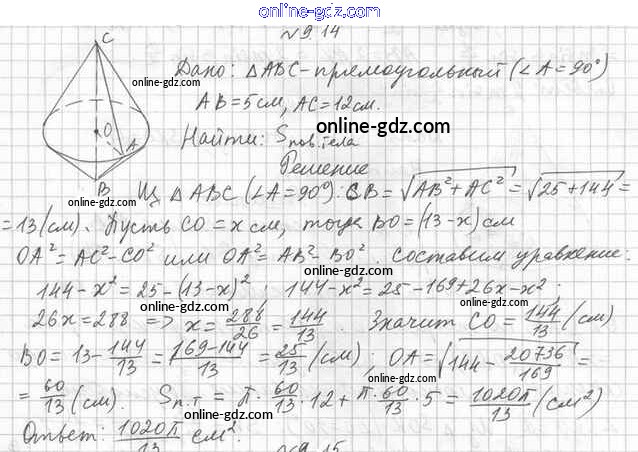 online-gdz.com
N 9.14
C
online-gdz.com
Дано: △ABC-прямоугольный (∠A=90°)
AB=5см, AC=12см.
O
A
B
online-gdz.com
Найти: Sпов.тела
Решение
online-gdz.com
Из △ABC (∠A=90°): CB=√AB²+AC² = √25+144 =
=13(см). Пусть CO=x см, тогда BO=(13-x)см
online-gdz.com
OA²=AC²-CO² или OA²=AB²-BO². Составим уравнение:
online-gdz.com
144-x²=25-(13-x)² 144-x²=25-169+26x-x²;
online-gdz.com
26x=288 => x=288/26=144/13. Значит CO=144/13(см)
online-gdz.com
BO=13-144/13=(169-144)/13=25/13(см); OA=√144-20736/169=
online-gdz.com
=60/13(см). Sп.т=π·60/13·12+π·60/13·5=1020π/13(см²)
online-gdz.com
Ответ: 1020π/13 см².
online-gdz.com
N9.15